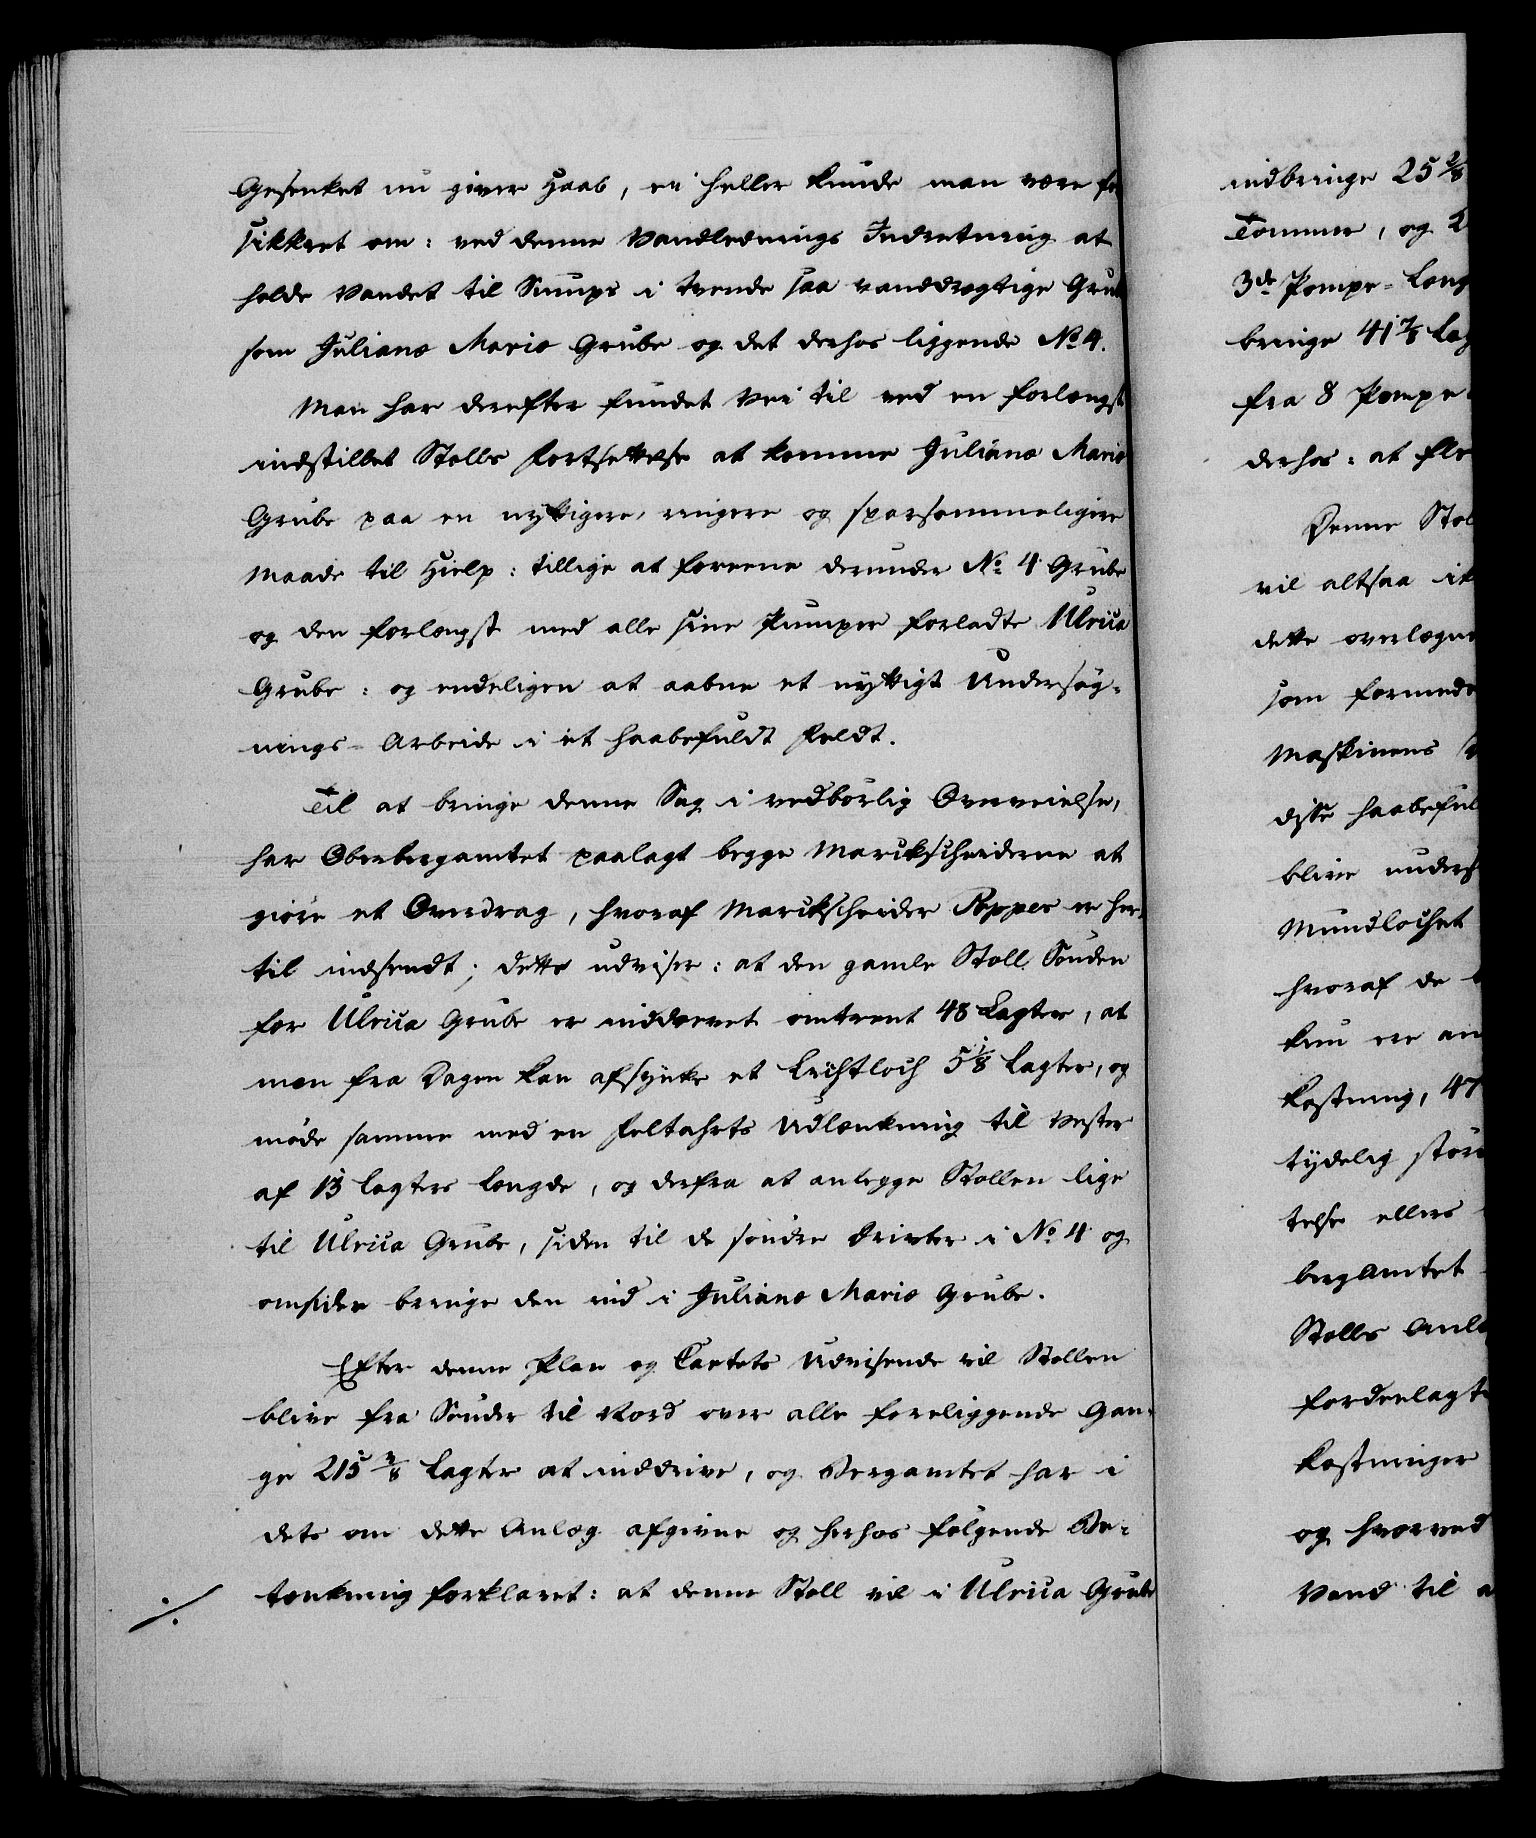 Gesenket nu giver Haab, ei heller kunde man være for
sikkret om: ved denne Vandlednings Indretning at
holde Vandet til Sumps i tvende saa vanddrægtige Grub
som Juliane Marie Grube og det derhos liggende No 4.
Man har derefter fundet Vei til ved en forlængst
indstillet Stolls Fortsettelse at komme Juliane Marie
Grube paa en nyttigere, ringere og sparsommeligere
Maade til Hielp: tillige at foreene derunder No 4 Grube
og den forlængst med alle sine Pumper forladte Ulrica
Grube: og endeligen at aabne et nyttigt Undersøg-
nings-Arbeide i et haabefuldt Feldt.
Til at bringe denne Sag i vedbørlig Overveielse,
har Oberbergamtet paalagt begge Marckscheiderne at
giøre et Overdrag, hvoraf Marckscheider Poppes er her-
til indsendt; dette udviser: at den gamle Stoll Sønden
for Ulrica Grube er inddrevet omtrent 48 Lagter, at
man fra Dagen kan afsynke et Lichtloch 5 1/8 Lagter, og
møde samme med en Feltahrts Udlænkning til Vester
af 13 Lagters Længde, og derfra at anlegge Stollen lige
til Ulrica Grube, siden til de søndre Drivter i No 4 og
omsider bringe den ind i Juliane Marie Grube.
Efter denne Plan og Cartets Udvisende vil Stollen
blive fra Sønder til Nord over alle foreliggende Gan-
ge 215 3/8 Lagter at inddrive, og Bergamtet har i
dets om dette Anlæg afgivne og herhos følgende Be-
tænkning forklaret: at denne Stoll vil i Ulrica Grube
indbringe 25 2/8
Tommer, og
3de Pompe-Læng
bringe 41 7/8 Lag
fra 8 Pompe
derhos: at fle
Denne Stol
vil altsaa ik
dette overlægne
som formede
Maskinens
disse haabeful
blive unders
Mundlochet
hvoraf de
kun ere an
kostning, 47
tydelig støre
telse ellers
bergamtet
Stolls Anl
fordeelagt
kostninger
og hvorved
Vand til a